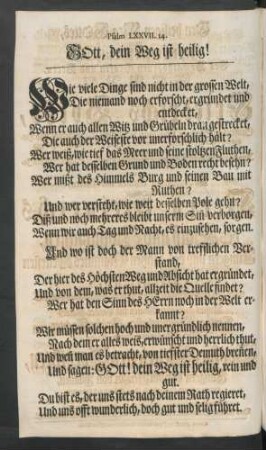 Psalm LXXVII. 14.
GOtt, dein Weg ist heilig!
Wie viele Dinge sind nicht in der grossen Welt,
Die niemand noch erforscht, ergründet und
entdecket,
Wenn er auch allen Witz und Grübeln dran gestrecket,
Die auch der Weiseste vor unerforschlich hält?
Wer weiß, wie tief das Meer und seine stoltzen Fluthen,
Wer hat desselben Grund und Boden recht besehn?
Wer mißt des Himmels Burg und seinen Bau mit
Ruthen?
Und wer versteht, wie weit desselben Pole gehn?
Diß und noch mehreres bleibt unserm Sinn verborgen,
Wenn wir auch Tag und Nacht, es einzusehen, sorgen.
Und wo ist doch der Mann von trefflichen Ver-
stand,
Der hier des Höchsten Weg und Absicht hat ergründet,
Und von dem, was er thut, allzeit die Quelle findet?
Wer hat den Sinn des HErrn noch in der Welt er-
kannt?
Wir müssen solchen hoch und unergründlich nennen,
Nach dem er alles weis, erwünscht und herrlich thut,
Und weñ man es betracht, von tiefster Demuth breñen,
Und sagen: GOtt! dein Weg ist heilig, rein und
gut.
Du bist es, der uns stets nach deinem Rath regieret,
Und uns offt wunderlich, doch gut und selig führet.